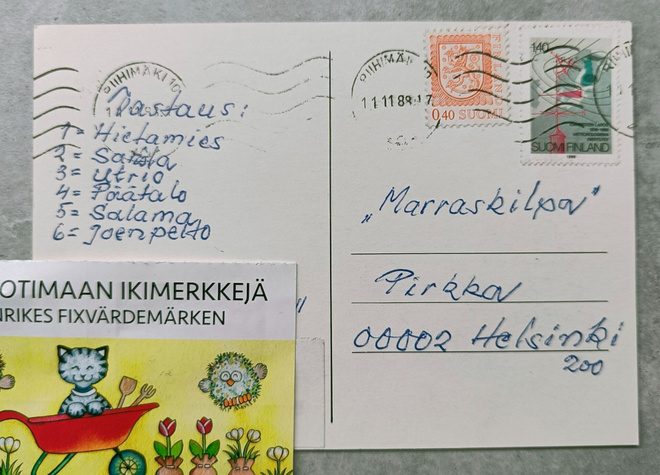 Vastaus:
1= Hietamies
2= Sariola
3= Utrio
4= Päätalo
5= Salama
6= Joenpelto
RIIHIMÄKI 10
RIIHIMÄ
11.11.88-17
0,40 SUOMI
140
SUOMI FINLAND
1988
„Marraskilpa"
Pirkka
00002 Helsinki
200
OTIMAAN IKIMERKKEJÄ
NRIKES FIXVÄRDEMÄRKEN